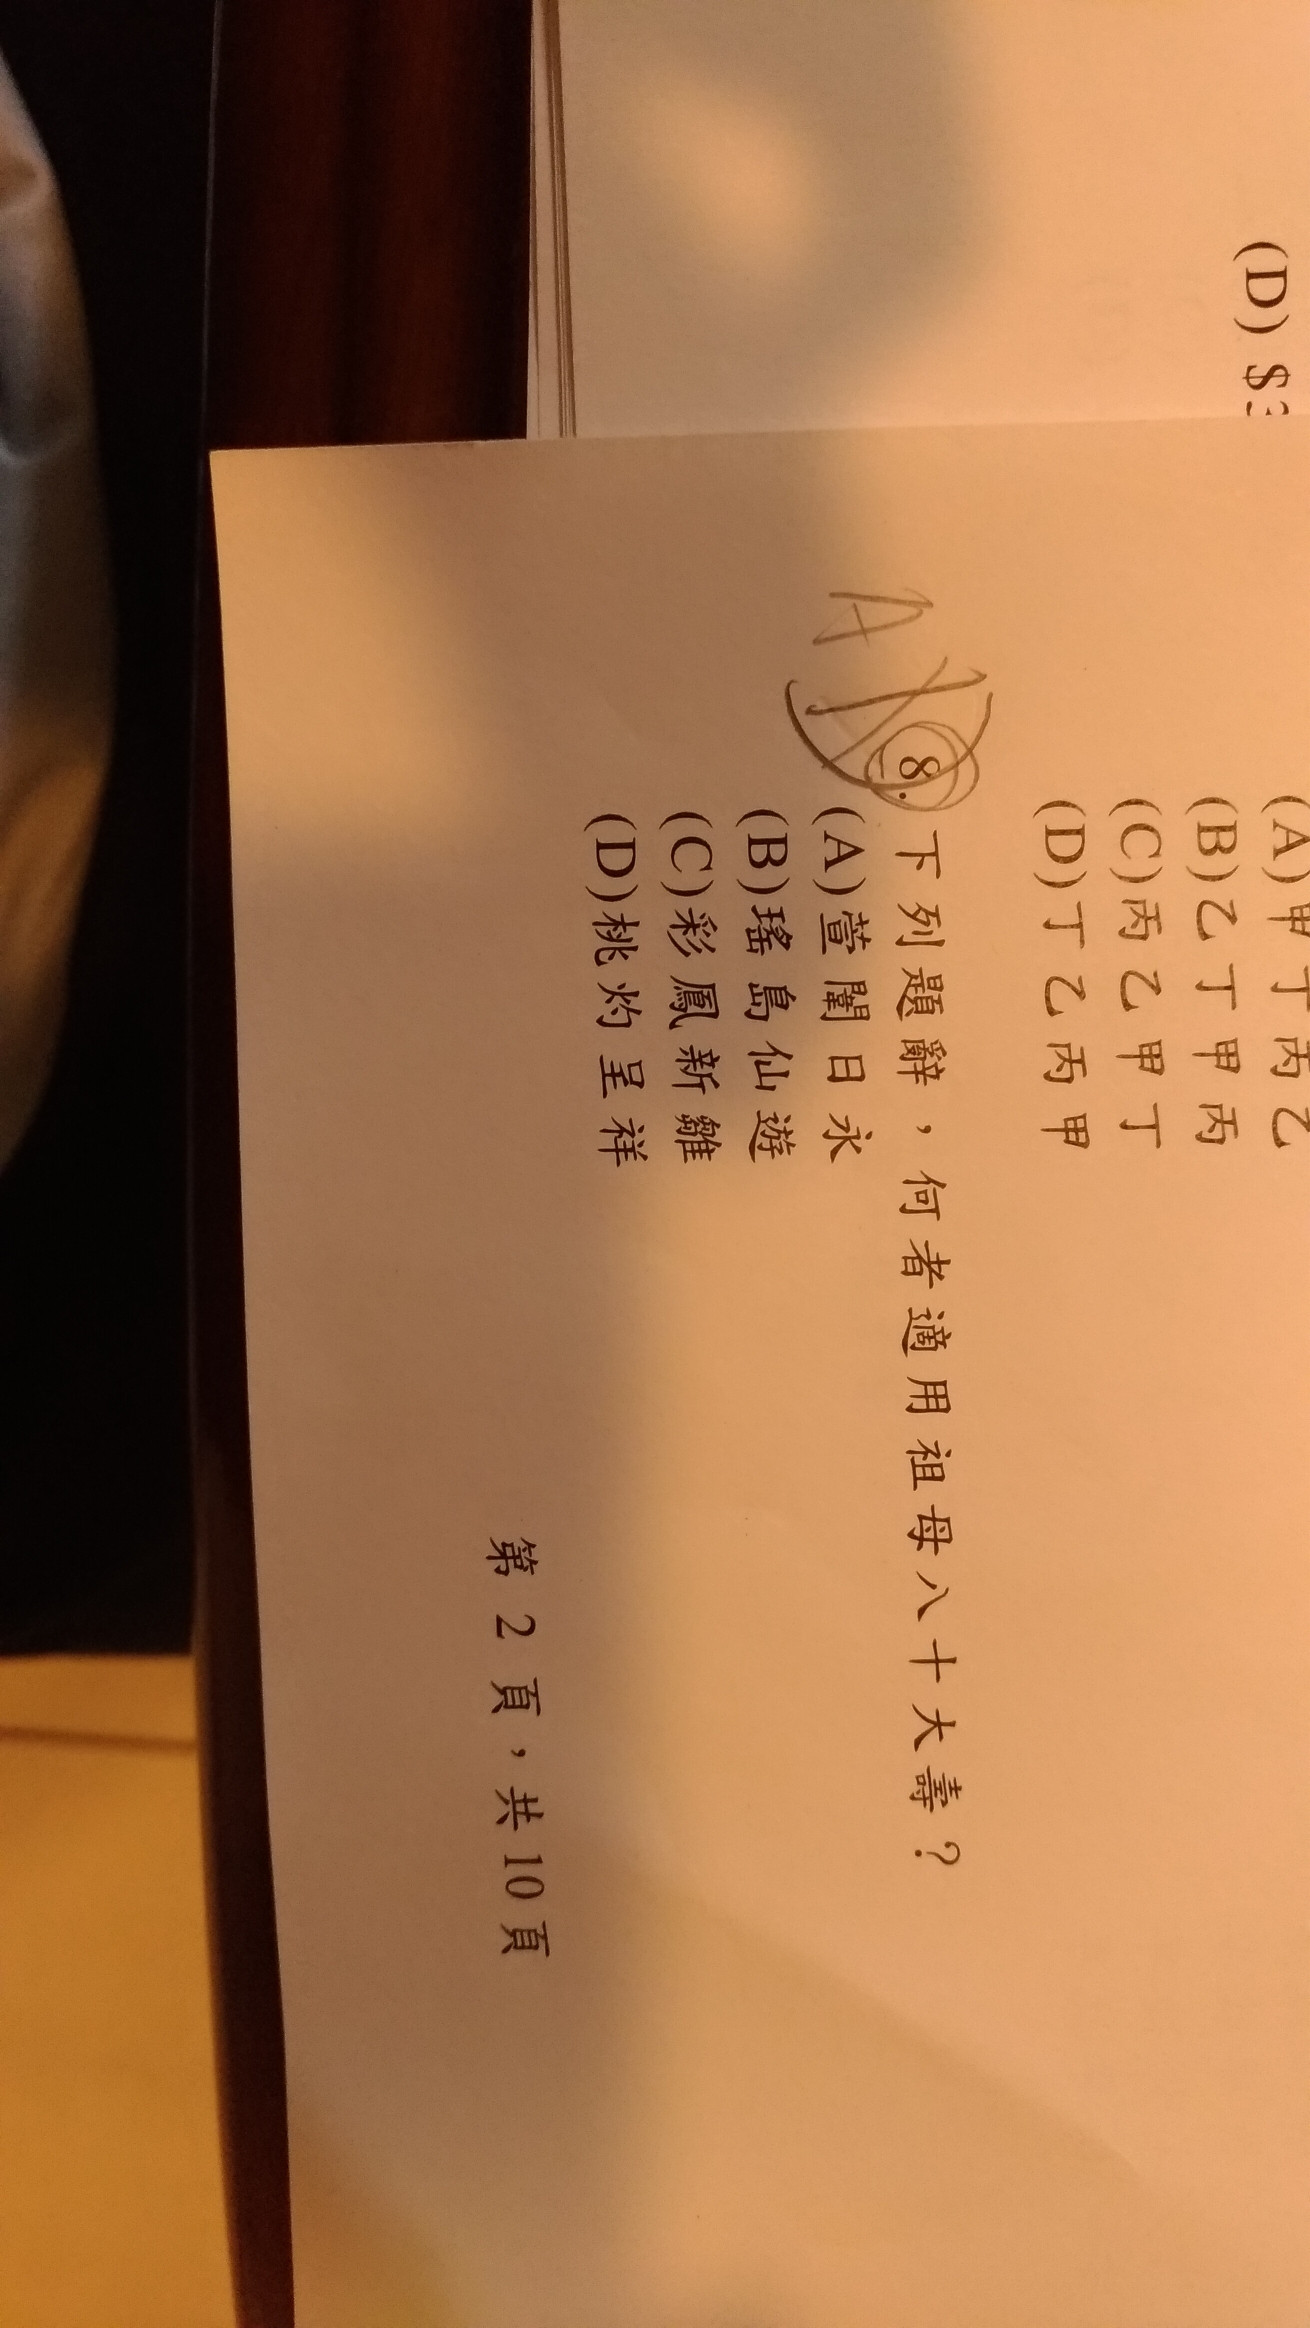 (D) $3
(A)甲丁丙乙
(B)乙丁甲丙
(C)丙乙甲丁
(D)丁乙丙甲
A
8.下列題辭，何者適用祖母八十大壽？
(A)萱闈日永
(B)瑤島仙遊
(C)彩鳳新雛
(D)桃灼呈祥
第 2 頁，共 10 頁